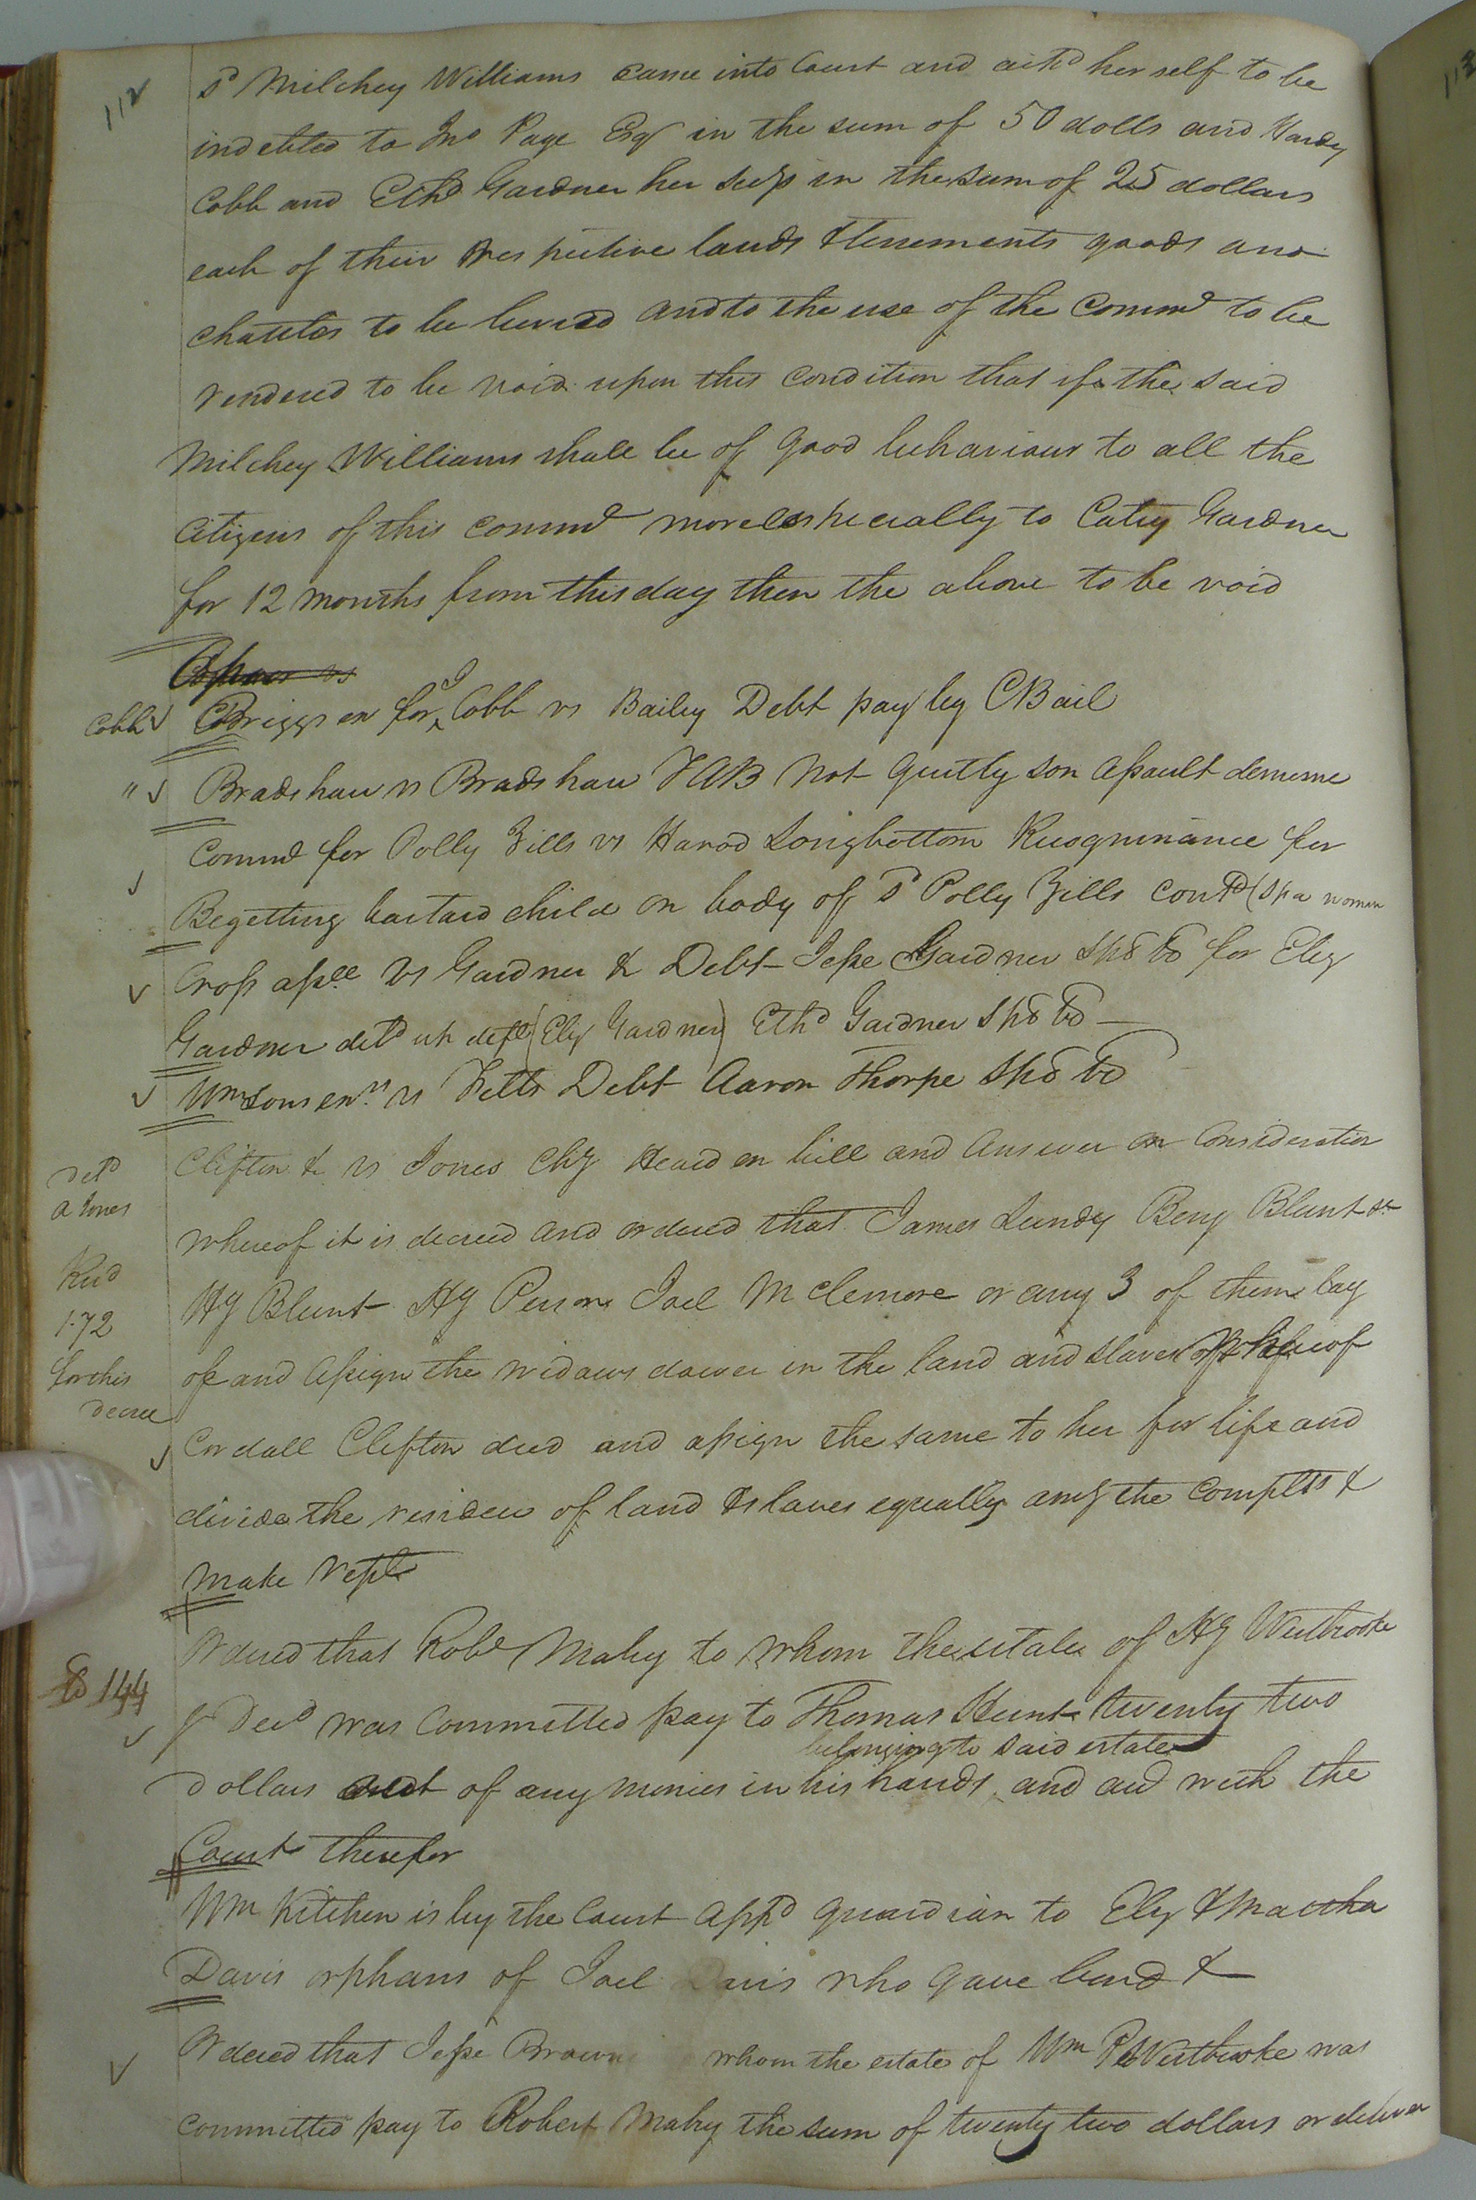 112
sd Milchey Williams came into Court and ackd her self to be
indebted to Jno Page Esqr in the sum of 50 dolls and Hardy
Cobb and Ethd Gardner her in the sum of 25 dollars
each of their respective lands & tenements goods and
chatteles to be levied and to the use of the Commd to be
rendered to be void upon this condition that if the said
Milchey Williams shall be of good behaviour to all the
Citizens of this Commd more especially to Catey Gardner
for 12 months from this day then the above to be void
Cobb Briggs en for J Cobb vs Bailey Debt pay by C Bail
" Bradshaw vs Bradshaw TAB Not guilty son assault demesne
Commd for Polly Zills vs Harod Longbottom Recogninance for
Begetting bastard child on body of sd Polly Zills contd (spa woman
Cross assee vs Gardner & Debt Jesse Gardner sps bd for Eley
Gardner detd (Eley Gardner) Ethd Gardner sps bd
Wmsons exrs vs Felts Debt Aaron Thorpe sps bd
Clifton & vs Jones Chy Heard on bill and answer on Consideration
Detd
a Jones
whereof it is decreed and ordered that James Lundy Benj Blunt sr
Recd
1.72
for this
decree
Hy Blunt Hy Person Joel McLemore or any 3 of them lay
off and assign the widows dower in the land and slaves whereof
Cordall Clifton died and assign the same to her for life and
divide the residue of land & slaves equally amg the Complts &
make rept
Ordered that Robt Mabry to whom the estate of Hy Westbrooke
144
Decd was committed pay to Thomas Hunt twenty two
belonging to said estate
dollars out of any monies in his hands and with the
Court therefor
Wm Kitchen is by the Court appd guardian to Eley & Martha
Davis orphans of Joel Davis who gave bond &
Ordered that Jesse Brown whom the estate of Wm P Westbrooke was
committed pay to Robert Mabry the sum of twenty two dollars or deliver
113